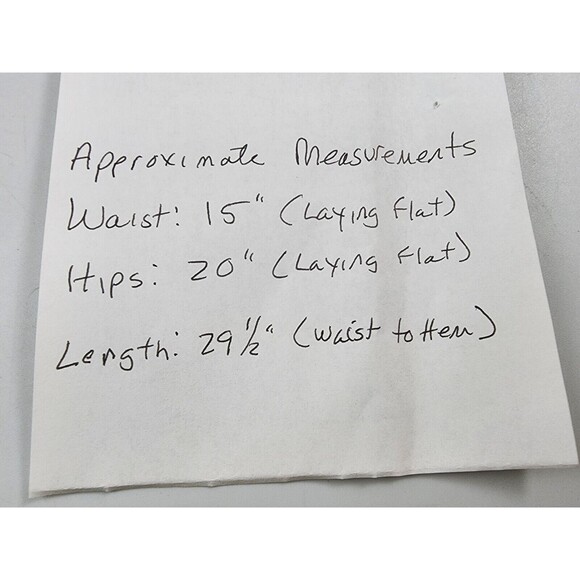 Approximate Measurements
Waist: 15" (Laying Flat)
Hips: 20" (Laying Flat)
Length: 29 1/2" (Waist to Hem)